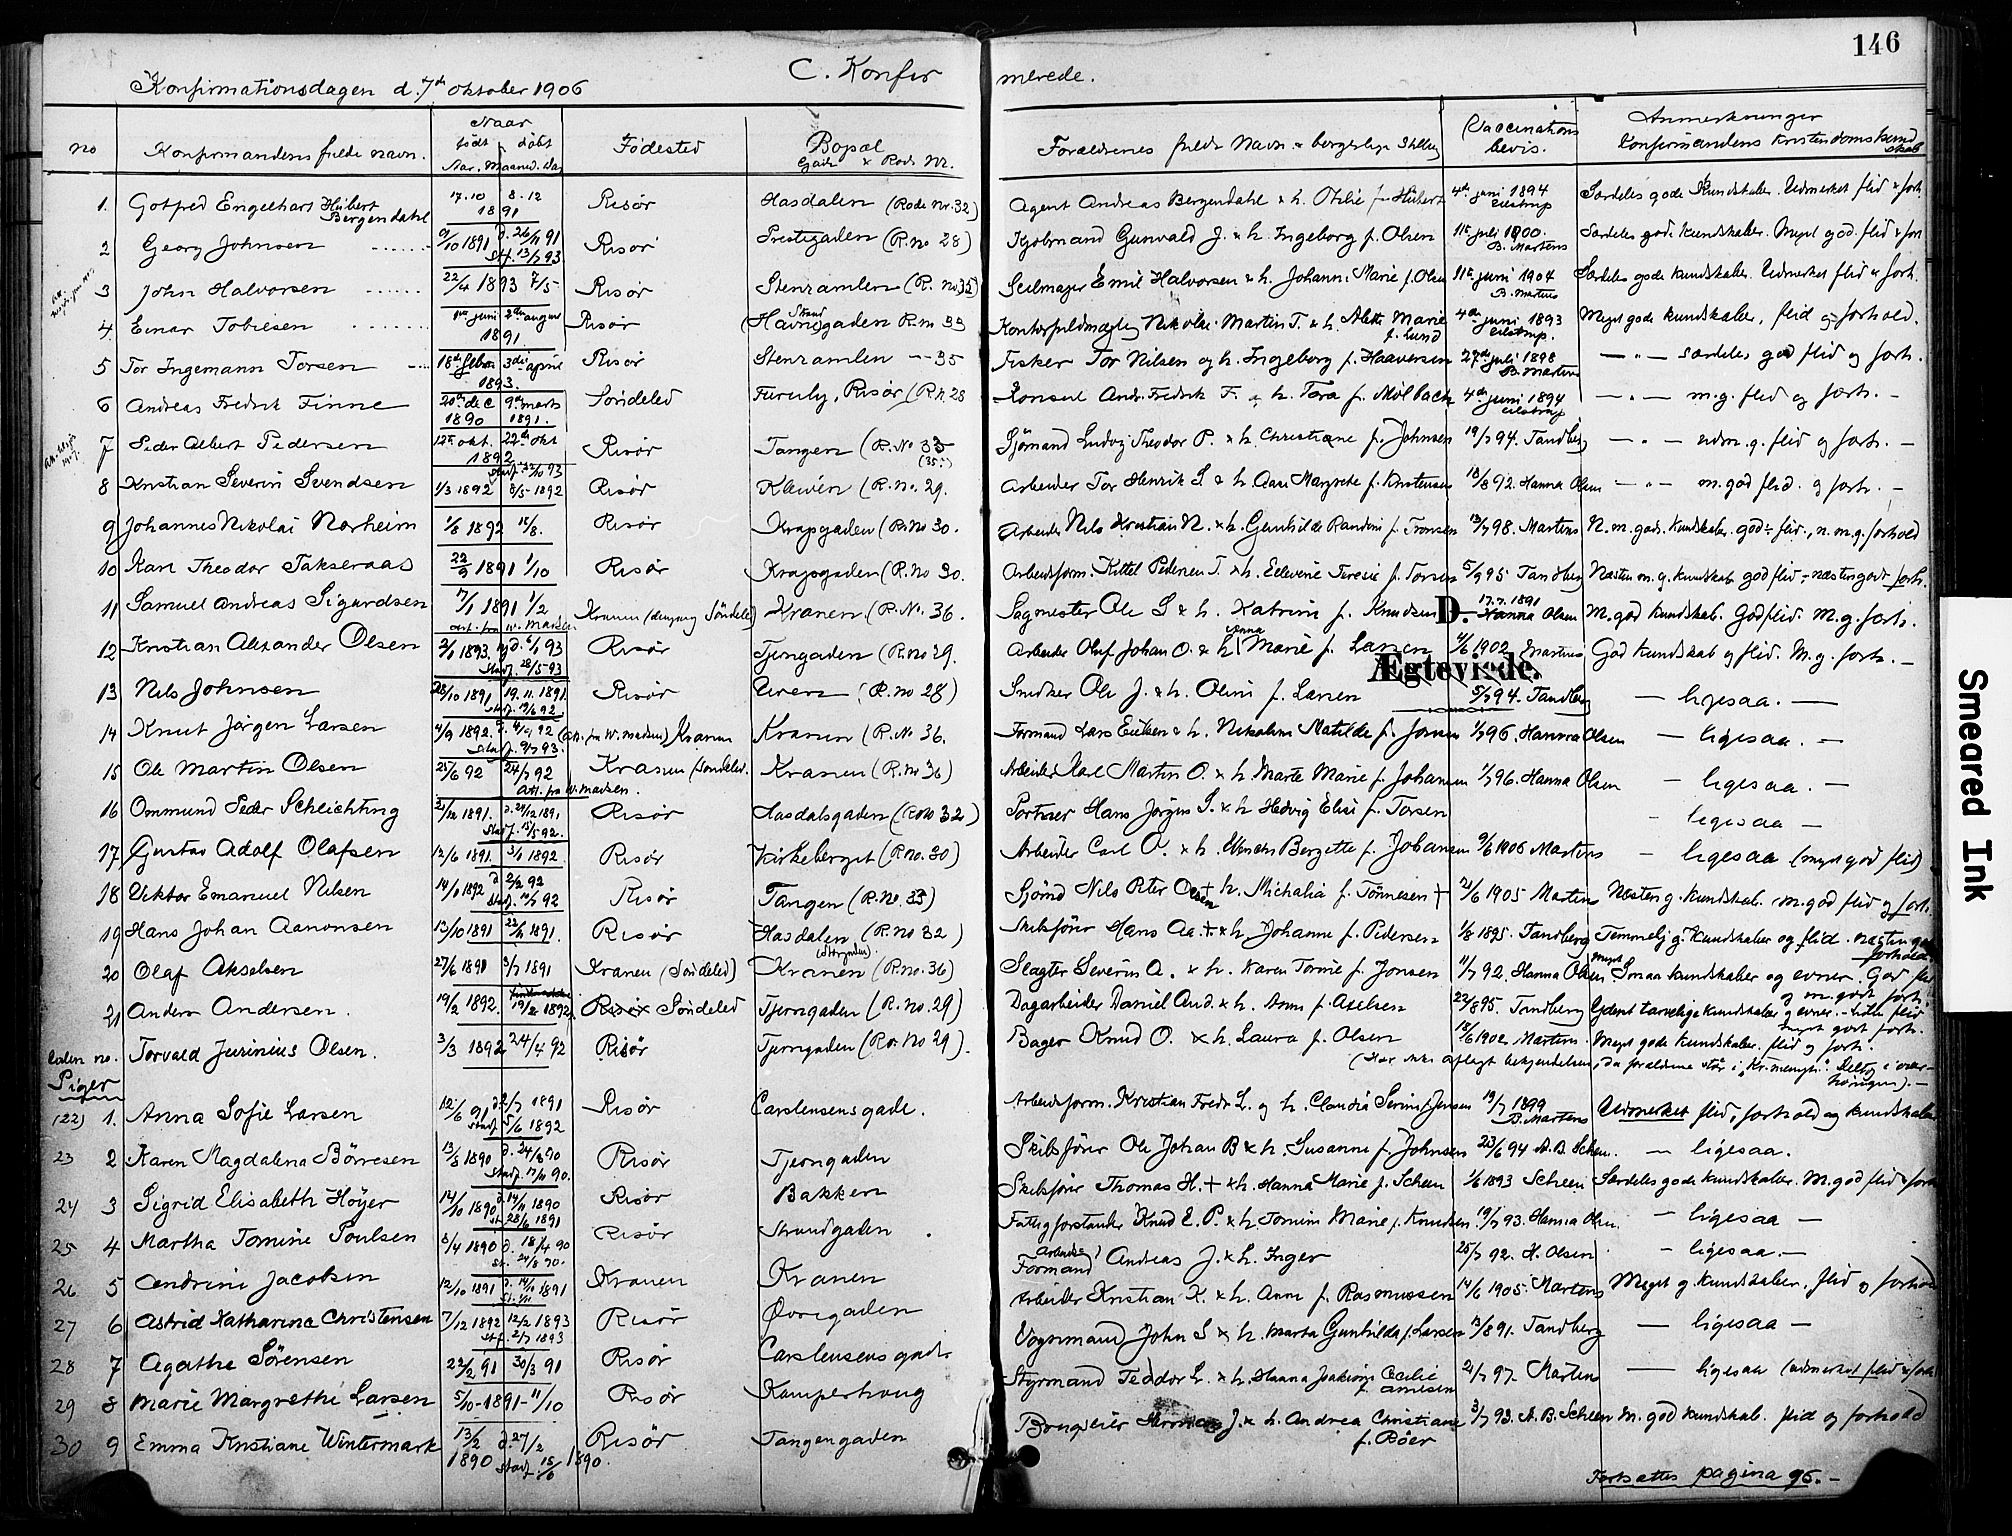 146
C. Konfirmerede.
Konfirmationsdagen d. 7de oktober 1906
no
Konfirmandens fulde navn.
Naar
født døbt
Aar. Maaned. Dag
Fødested
Bopæl
Gade & Rode Nr.
Forældrenes fulde Navn & borgerlige Stilling
Vaccinations bevis.
Anmerkninger
Konfirmandens kristendomskundskab
1. Gotfred Engelhart Hübert Bergendahl 17.10 8.12 1891 Risør Hasdalen (Rode nr. 32) Agent Andreas Bergendahl & h. Othilie f. Hübert 4de juni 1894 Eilstrup Særdeles gode Kundskaber. Udmerket flid & forh.
2 Georg Johnsen 9/10 1891 d. 26/11 91 Stf. 13/7 93 Risør Prestegaden (R. no 28) Gunvald J. & h. Ingeborg f. Olsen 11te juli 1900. B. Martens Særdeles gode kundskaber. Meget god flid & forh
3 John Halvorsen 22/4 1893 7/5 Risør Stenramlen (R. no 35) Seilmager Emil Halvorsen & h. Johanne Marie f. Olsen 11te juni 1904 B. Martens Særdeles gode kundskaber. Udmerket flid & forh.
4 Einar Tobiesen 1ste juni 2den august 1891. Risør Strand (Havne)gaden R. nr 33 Kontorfuldmægtig Nikolai Martin T. & h. Alette Marie f. Lund 4de juni 1893 Eilstrup. Meget gode kundskaber, flid og forhold.
5 Tor Ingemann Torsen 18de febr 3die april 1893. Risør Stenramlen — 35 Fisker Tor Nilsen og h. Ingeborg f. Haaversen 27de juli 1898 B. Martens — " — særdeles god flid og forh.
6 Andreas Fredrik Finne 20de dec 9de marts 1890 1891. Søndeled Furuly, Risør (R. 28 Konsul Andr. Fredrik F. & h. Tora f. Mølbach 4de juni 1894 Eilstrup — " — m. g. flid og forh. —
7 Peder Albert Pedersen 12te okt. 22de okt 1892 Risør Tangen (R. No 33 (35.) Sjømand Ludvig Theodor P. & h. Christiane f. Johnsen 19/7 94. Tandberg — " — udm. g. flid og forh. —
8 Kristian Severin Svendsen 1/3 1892 8/5 1892 Stadf. 22/10 93 Risør Kleiven (R. no. 29. Arbeider Tor Henrik S & h. Aase Margrete f. Kristensen 18/8 92. Hanna Olsen — " — m. god flid. og forh. —
9 Johannes Nikolai Norheim 1/8 1892 15/8. Risør Kragsgaden (R. no 30. Arbeider Nils Kristian N. & h. Gunhilde Randine f. Tronsen 13/7 98. Martens N. m. gode Kundskaber. god flid., n. m. g. forhold
10 Karl Theodor Takseraas 22/9 1891 1/10 Risør Kragsgaden (R. no 30. Arbeidsform. Kittel Pedersen T. & h. Ellevine Teresie f. Torsen 5/9 95 Tandberg Næsten m. g. kundskab. god flid - næsten godt forh.
11 Samuel Andreas Sigurdsen 17/1 1891 1/2 att. fra W. Madsen Kranen (dengang Søndeled) Kranen (R. No. 36. Sagmester Ole S & h. Katrine f. Knudsen D. 17.7.1891 Hanna Olsen M. god kundskab. God flid. M. g. forh.
12 Kristian Alexander Olsen 2/1 1893 d. 6/1 93 Stadf. 28/5 93 Risør Tjerngaden (R. no 29. Arbeider Oluf Johan O. & h. Anna Marie f. Larsen 4/6 1902 Martens God kundskab og flid. M. g. forh. —
Ægteviede.
13 Nils Johnsen 28/10 1891 19.11.1891. Stadf. 19/6 92 Risør Uren (R. no 28) Snedker Ole J. & h. Oline f. Larsen 5/7 94. Tandberg — ligesaa. —
14 Knut Jørgen Larsen 4/9 1892. d. 4/9 92 Stadf. 9/7 93. (att. fra W. Madsen) Kranen Kranen (R. No 36. Formand Lars Eriksen & h. Nikoline Matilde f. Jonsen 1/7 96. Hanna Olsen — ligesaa. —
15 Ole Martin Olsen 25/6 92 24/7 92 Att. fra W. Madsen. Kranen (Søndeled. Kranen (R. nr 36) Arbeider Karl Martin O. & h. Marte Marie f. Johansen 1/7 96. Hanna Olsen — ligesaa. —
16 Ommund Peder Schlichting 21/12 1891. d. 24/12 1891 Stadf. 15/5 92. Risør Hasdalsgaden (R no 32) Portner Hans Jørgen S. & h. Hedvig Elise f. Torsen — ligesaa —
17 Gustav Adolf Olafsen 12/6 1891. 3/1 1892. Risør Kirkeberget (R no. 30) Arbeider Carl O. & h. Wenche Bergette f. Johansen 9/6 1906 Martens — ligesaa (meget god flid)
18 Viktor Emanuel Nilsen 14/1 1892 d 2/2 92 Stadf. 14/7 92 Risør Tangen (R. No. 33) Sjømd Nils Peter Olsen + h. Michalia f. Tønnesen + 21/6 1905 Martens Næsten g. kundskab. m. god flid og forh.
19 Hans Johan Aanonsen 13/10 1891 22/11 1891. Risør Hasdalen (R. no 32) Skibsfører Hans Aa. + & h. Johanne f. Pedersen 1/8 1895. Tandberg Temmelig g. kundskaber og flid. næsten godt forhold
20 Olaf Akselsen 27/6 1891 3/7 1891 Kranen (Søndeled) Kranen (R. no. 36) Slagter Severin A. & h. Karen Tomine f. Jonsen 11/7 92. Hanna Olsen. meget Smaa kundskaber og evner. God flid og m. godt forh.
21 Anders Andersen. 19/2 1892. 19/2 1892. Risør Søndeled Tjerngaden (R. no. 29) Dagarbeider Daniel And. & h. Anne f. Axelsen 22/8 95. Tandberg Yderst tarvelige kundskaber og evner. - Liden flid meget godt forh.
Uden no. Torvald Jurinius Olsen. 3/3 1892 24/4 92 Risør Tjerngaden (Ro. No 29). Bager Knud O. & h. Laura f. Olsen 18/6 1902 Martens Meget gode kundskaber. flid og forh.
(Har ikke aflagt bekjendelsen, da forældrene står i "Kr. menigh." Deltog i overhøringen). —
Piger
(22) 1. Anna Sofie Larsen 12/6 91 d. 2/7 1891 Stadf. 5/6 1892 Risør Carstensensgade. Arbeidsform. Kristian Fredr L. og h. Claudia Serine f. Jensen 19/7 1899 B. Martens Udmerket flid, forhold og kundskaber
23 2 Karen Magdalena Børresen 13/8 1890 d. 24/8 90 Stadf. 17/11 90. Risør Tjerngaden Skibsfører Ole Johan B & h. Susanne f. Johnsen 23/6 94 A. B. Scheen. — ligesaa.
24 3 Sigrid Elisabeth Høyer 14/10 1890 d. 14/11 1890 St. 28/6 1891 Risør Bakken Skibsfører Thomas H. + & h. Hanna Marie f. Scheen 1/6 1893 Scheen Særdeles gode kundskaber. M. god flid & forh
25 4 Martha Tomine Poulsen 3/4 1890 d. 18/4 90 St. 24/8 90. Risør Strandgaden. Fattigforstander Knud E. P. & h. Tomine Marie f. Knudsen 19/7 93. Hanna Olsen. — ligesaa —
26 5 Andrine Jacobsen 12/10 1891 d. 14/10 1891 Kranen Kranen Arbeider Formand Andreas J. & h. Inger 25/7 92. H. Olsen — ligesaa. —
27 6 Astrid Katharina Christensen 7/12 1892 12/2 1893 Stf. 2/7 1893 Risør Øvregaden Arbeider Kristian K. & h. Anne f. Rasmussen 14/6 1905. Martens Meget g. kundskaber, flid og forhold
28 7 Agathe Sørensen 22/2 91 30/3 91 Risør Carstensensgade Vognmand John S & h. Marta Gunhilda f. Larsen 13/8 91. Tandberg — ligesaa —
29 8 Marie Margrethe Larsen 5/10-1891-11/10 Risør Kamperhaug Styrmand Teodor L. & h. Hanna Joakime Cecilie f. Arnesen 21/7 97. Martens — ligesaa (udmerket flid & forh
30 9 Emma Kristiane Wintermark 13/2 1890 d. 27/2 Stadf 15/6 1890. Risør Tangengaden J. & h. Andrea Christiane f. Bøer 3/7 93. A. B. Scheen M. god kundskab. flid og forhold
Fortsættes pagina 96. —
Smeared Ink